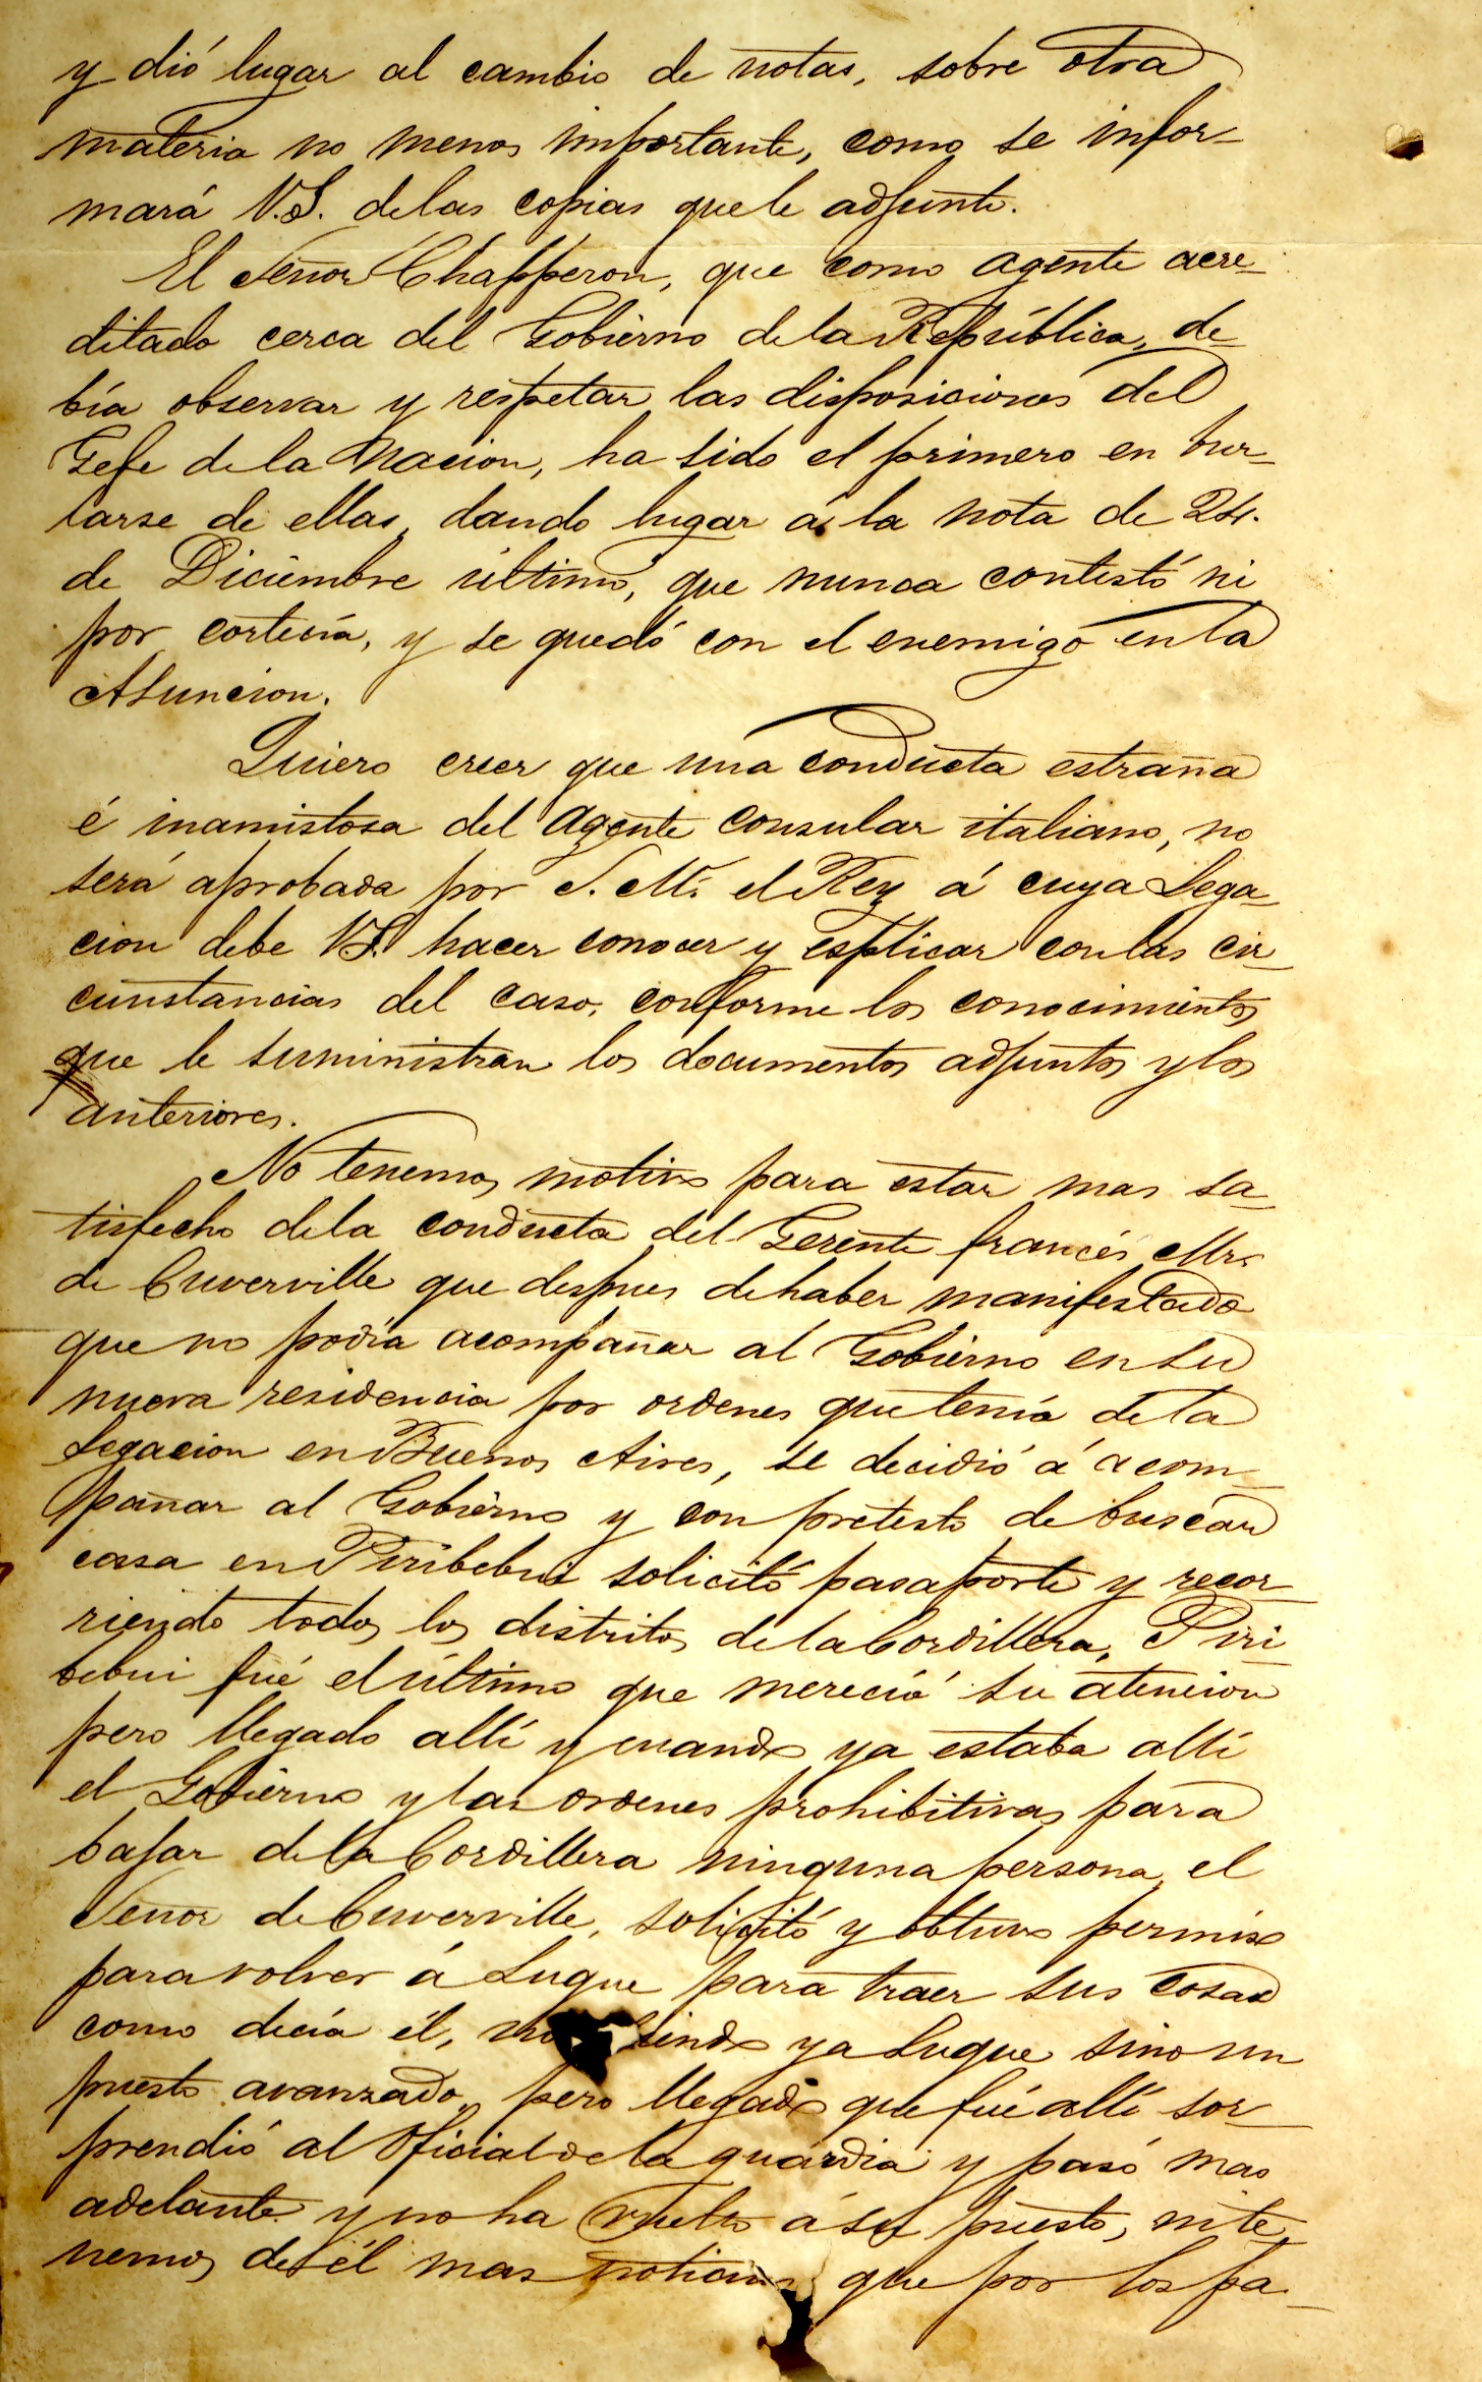 y dió lugar al cambio de notas, sobre otra
materia no menos importante, como se infor-
mará V.S. delas copias que le adjunto.
El Señor Chapperon, que como agente acre-
ditado cerca del Gobierno dela República, de-
bía observar y respetar las disposiciones del
Gefe de la Nacion, ha sido el primero en bur-
larse de ellas, dando lugar á la nota de 24.
de Diciembre último, que nunca contestó ni
por cortesía, y se quedó con el enemigo en la
Asuncion.
Quiero creer que una conducta estraña
é inamistosa del agente consular italiano, no
será aprobada por S. M. el Rey á cuya Lega-
cion debe V.S. hacer conocer y esplicar con las cir-
cunstancias del caso, conforme los conocimientos
que le suministran los documentos adjuntos y los
anteriores.
No tenemos motivo para estar mas sa-
tisfecho dela conducta del Gerente francés Mr.
de Cuverville que despues de haber manifestado
que no podía acompañar al Gobierno en su
nueva residencia por ordenes que tenía de la
Legacion en Buenos Aires, se decidió á acom-
pañar al Gobierno y con pretesto de buscar
casa en Piribebui solicitó pasaporte y recor-
riendo todos los distritos de la Cordillera, Piri-
bebui fué el último que mereció su atencion
pero llegado allí y cuando ya estaba allí
el Gobierno y las ordenes prohibitivas para
bajar de la Cordillera ninguna persona, el
Señor de Cuverville, solicitó y obtuvo permiso
para volver á Luque para traer sus cosas
como decía él, no siendo ya Luque sino un
puesto avanzado, pero llegado que fué allí sor-
prendió al Oficial de la guardia y pasó mas
adelante y no ha vuelto á su puesto, ni te-
nemos de él mas noticias que por los pa-